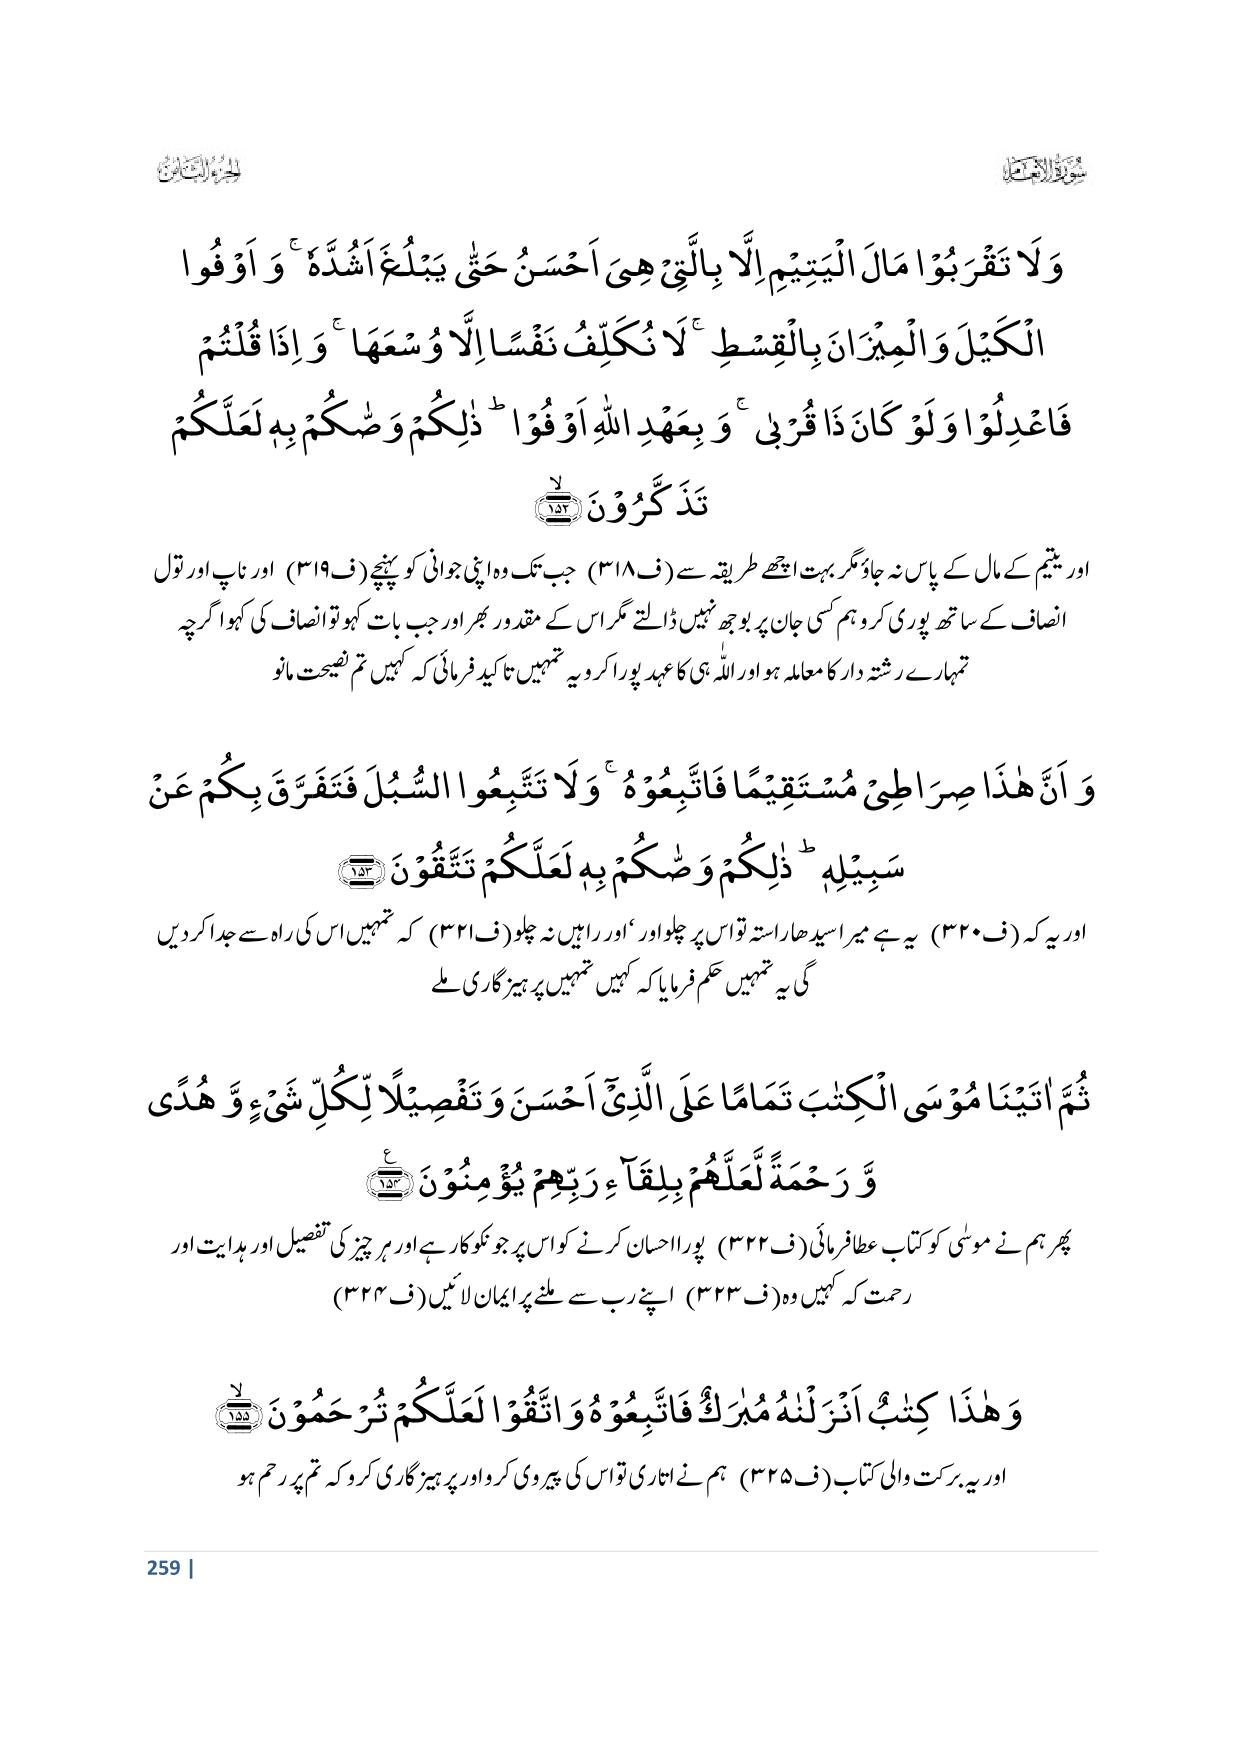 سُوۡرَۃُ الۡاَنۡعَام
الجزء الثامن
وَلَا تَقْرَبُوْا مَالَ الْیَتِیْمِ اِلَّا بِالَّتِیْ هِیَ اَحْسَنُ حَتّٰی یَبْلُغَ اَشُدَّهٗ ۚ وَ اَوْفُوا
الْكَیْلَ وَ الْمِیْزَانَ بِالْقِسْطِ ۚ لَا نُكَلِّفُ نَفْسًا اِلَّا وُسْعَهَا ۚ وَ اِذَا قُلْتُمْ
فَاعْدِلُوْا وَ لَوْ كَانَ ذَا قُرْبٰی ۚ وَ بِعَهْدِ اللّٰهِ اَوْفُوْا ؕ ذٰلِكُمْ وَصّٰىكُمْ بِهٖ لَعَلَّكُمْ
تَذَكَّرُوْنَ ﴿۱۵۲﴾ۙ
اور یتیم کے مال کے پاس نہ جاؤ مگر بہت اچھے طریقہ سے (ف۳۱۸) جب تک وہ اپنی جوانی کو پہنچے (ف۳۱۹) اور ناپ اور تول
انصاف کے ساتھ پوری کرو ہم کسی جان پر بوجھ نہیں ڈالتے مگر اس کے مقدور بھر اور جب بات کہو تو انصاف کی کہو اگرچہ
تمہارے رشتہ دار کا معاملہ ہو اور اللّٰہ ہی کا عہد پورا کرو یہ تمہیں تاکید فرمائی کہ کہیں تم نصیحت مانو
وَ اَنَّ هٰذَا صِرَاطِیْ مُسْتَقِیْمًا فَاتَّبِعُوْهُ ۚ وَ لَا تَتَّبِعُوا السُّبُلَ فَتَفَرَّقَ بِكُمْ عَنْ
سَبِیْلِهٖ ؕ ذٰلِكُمْ وَصّٰىكُمْ بِهٖ لَعَلَّكُمْ تَتَّقُوْنَ ﴿۱۵۳﴾
اور یہ کہ (ف۳۲۰) یہ ہے میرا سیدھا راستہ تو اس پر چلو اور ‘اور راہیں نہ چلو (ف۳۲۱) کہ تمہیں اس کی راہ سے جدا کردیں
گی یہ تمہیں حکم فرمایا کہ کہیں تمہیں پرہیزگاری ملے
ثُمَّ اٰتَیْنَا مُوْسَی الْكِتٰبَ تَمَامًا عَلَی الَّذِیْۤ اَحْسَنَ وَ تَفْصِیْلًا لِّكُلِّ شَیْءٍ وَّ هُدًی
وَّ رَحْمَةً لَّعَلَّهُمْ بِلِقَآءِ رَبِّهِمْ یُؤْمِنُوْنَ ﴿۱۵۴﴾ع
پھر ہم نے موسٰی کو کتاب عطا فرمائی (ف۳۲۲) پورا احسان کرنے کو اس پر جو نکوکار ہے اور ہر چیز کی تفصیل اور ہدایت اور
رحمت کہ کہیں وہ (ف۳۲۳) اپنے رب سے ملنے پر ایمان لائیں (ف۳۲۴)
وَ هٰذَا كِتٰبٌ اَنْزَلْنٰهُ مُبٰرَكٌ فَاتَّبِعُوْهُ وَ اتَّقُوْا لَعَلَّكُمْ تُرْحَمُوْنَ ﴿۱۵۵﴾ۙ
اور یہ برکت والی کتاب (ف۳۲۵) ہم نے اتاری تو اس کی پیروی کرو اور پرہیزگاری کرو کہ تم پر رحم ہو
259 |